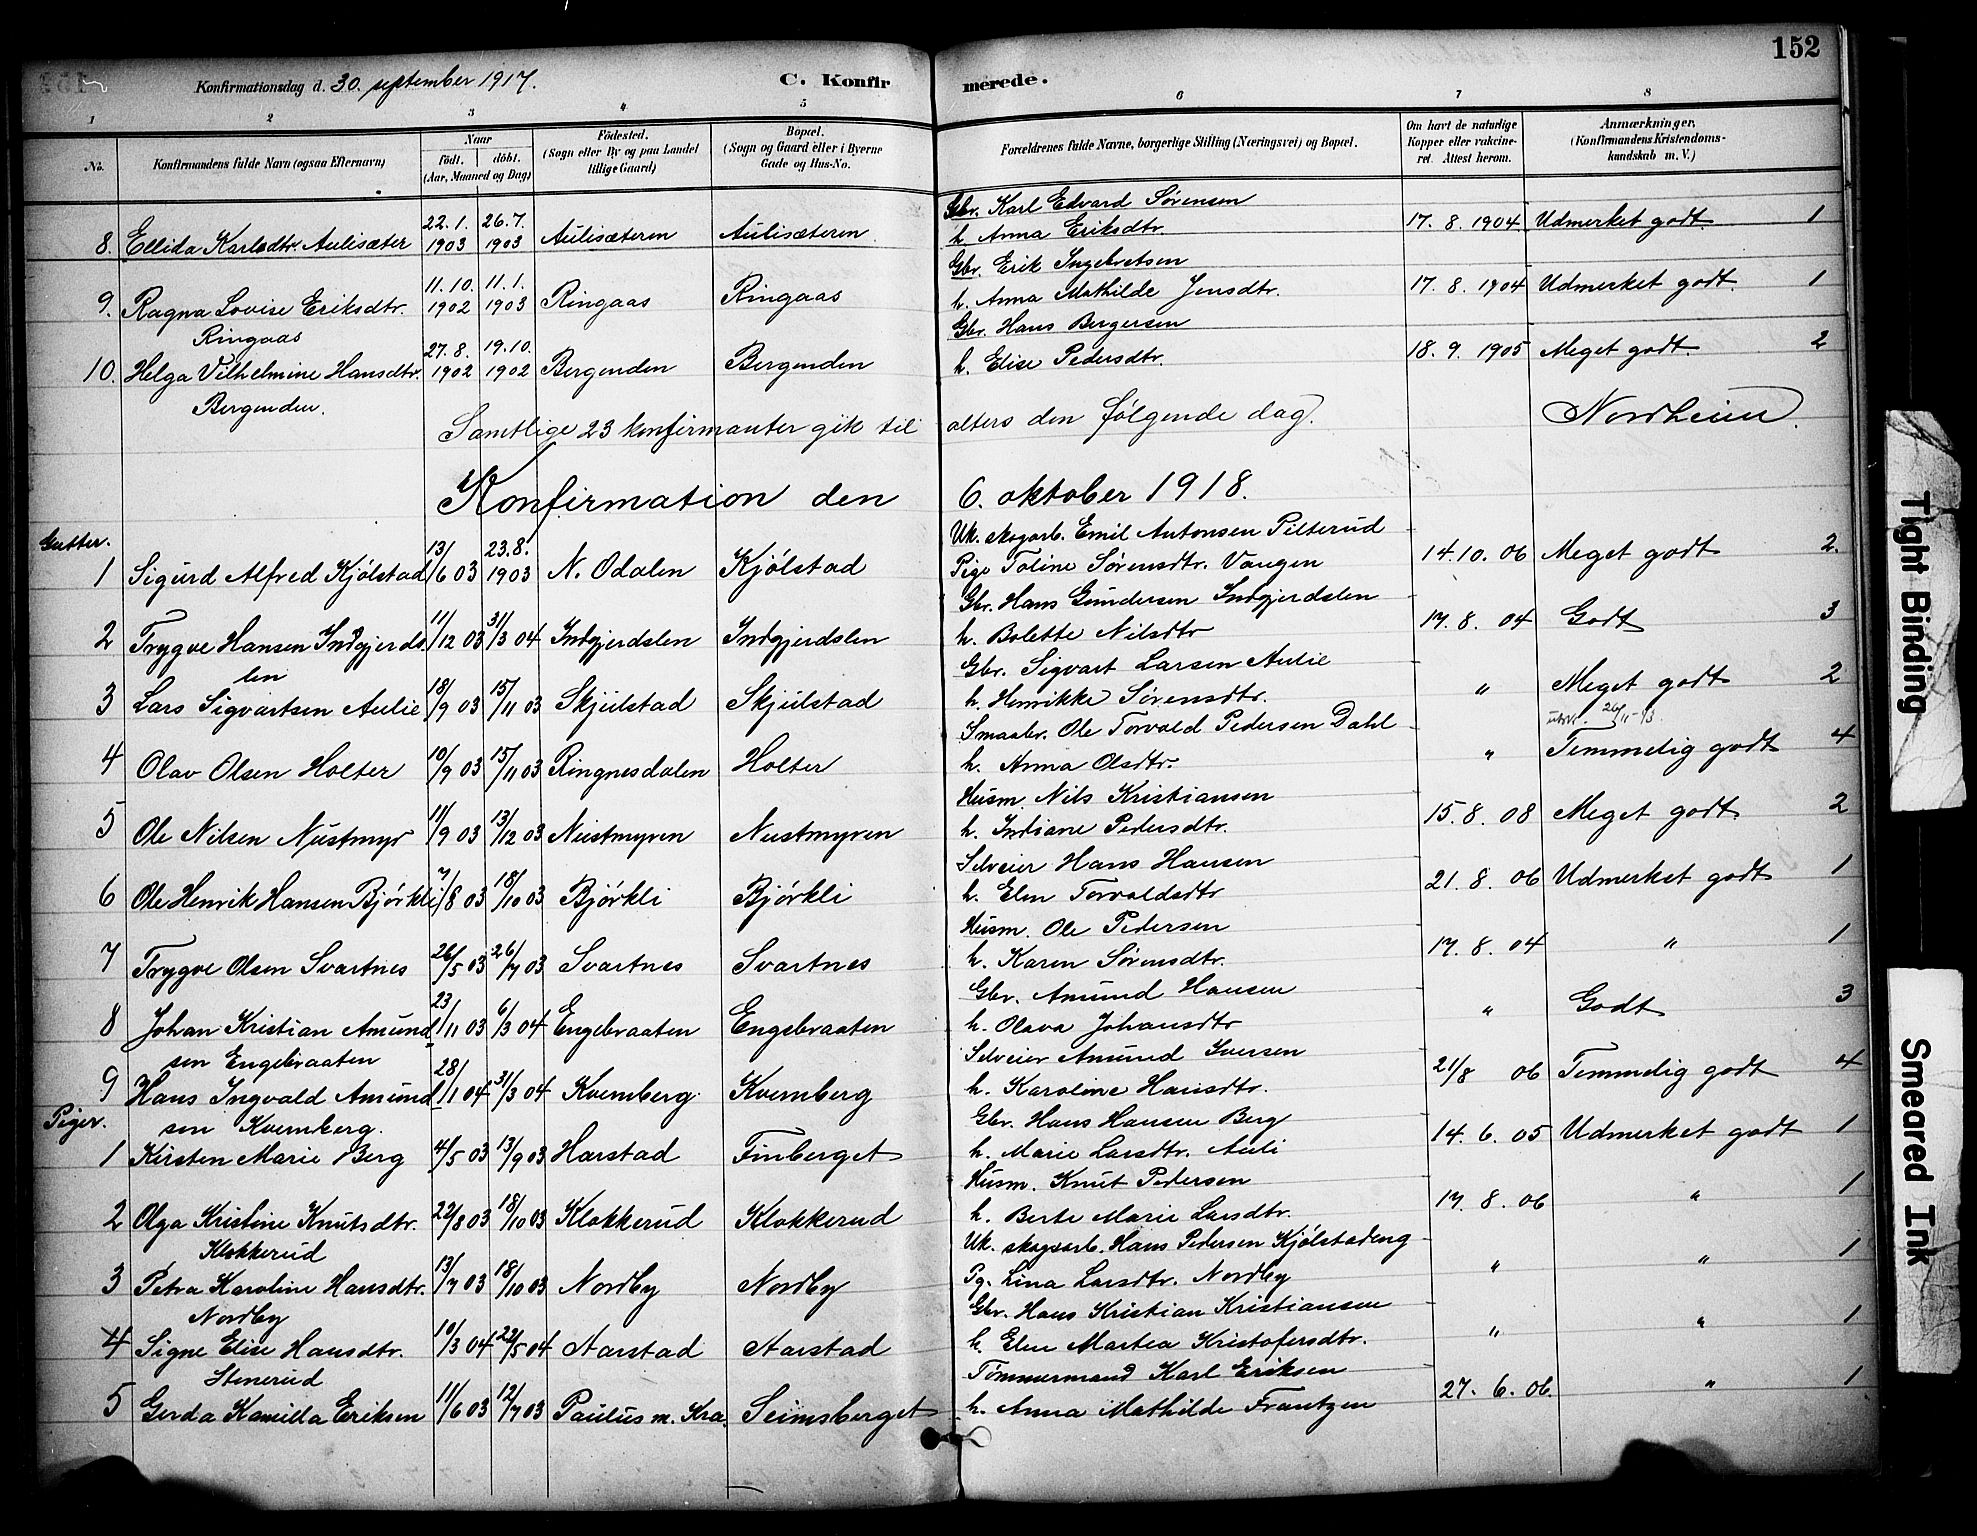 152
Konfirmationsdag d. 30. september 1917. C. Konfirmerede.
1 2 3 4 5 6 7 8
No. Konfirmandens fulde Navn (ogsaa Efternavn) Naar født. døbt. (Aar, Maaned og Dag) Fødested. (Sogn eller By og paa Landet tillige Gaard) Bopæl. (Sogn og Gaard eller i Byerne Gade og Hus-No. Forældrenes fulde Navne, borgerlige Stilling (Næringsvei) og Bopæl. Om havt de naturlige Kopper eller vakcineret. Attest herom. Anmærkninger. (Konfirmandens Kristendomskundskab m. V.)
Gbr. Karl Edvard Sørensen
8. Ellida Karlsdtr. Aulisæter 22.1. 1903 26.7. 1903 Aulisæteren Aulisæteren h. Anna Eriksdtr. 17.8.1904 Udmerket godt. 1
Gbr. Erik Ingebretsen
9. Ragna Lovise Eriksdtr. 11.10. 1902 11.1. 1903 Ringaas Ringaas h. Anna Mathilde Jensdtr. 17.8.1904 Udmerket godt. 1
Ringaas Gbr. Hans Bergersen
10. Helga Vilhelmine Hansdtr. 27.8. 1902 19.10. 1902 Bergenden Bergenden h. Elise Pedersdtr. 18.9.1905 Meget godt. 2
Bergenden.
Samtlige 23 konfirmanter gik til alters den følgende dag. Nordheim.
Konfirmation den 6. oktober 1918.
Gutter. Uk. skogarb. Emil Antonsen Pilterud
1 Sigurd Alfred Kjølstad 13/6 03 23.8. 1903 N. Odalen Kjølstad Pige Toline Sørensdtr. Vangen 14.10.06 Meget godt 2.
Gbr. Hans Gundersen Indgjerdslen
2 Trygve Hansen Indgjerds 11/12 03 31/3 04 Indgjerdslen Indgjerdslen h. Bolette Nilsdtr 17.8.04 Godt 3
len Gbr. Sigvart Larsen Aulie
3 Lars Sigvartsen Aulie 18/9 03 15/11 03 Skjulstad Skjulstad h. Henrikke Sørensdtr. " Meget godt 2
Smaabr. Ole Torvald Pedersen Dahl
4 Olav Olsen Holter 10/9 03 15/11 03 Ringnesdalen Holter h. Anna Olsdtr. " Temmelig godt 4
Husm. Nils Kristiansen
5 Ole Nilsen Nustmyr 11/9 03 13/12 03 Nustmyren Nustmyren h. Indiane Pedersdtr. 15.8.08 Meget godt 2
Selveier Hans Hansen
6 Ole Henrik Hansen Bjørkli 7/8 03 18/10 03 Bjørkli Bjørkli h. Elen Torvaldsdtr 21.8.06 Udmerket godt 1
Husm. Ole Pedersen
7 Trygve Olsen Svartnes 26/5 03 26/7 03 Svartnes Svartnes h. Karen Sørensdtr. 17.8.04 " 1
Gbr. Amund Hansen
8 Johan Kristian Amund 23/11 03 6/3 04 Engebraaten Engebraaten h. Olava Johansdtr " Godt 3
sen Engebraaten Selveier Amund Iversen
9 Hans Ingvald Amund 28/1 04 31/3 04 Kvernberg Kvernberg h. Karoline Hansdtr. 21/8 06 Temmelig godt 4
Piger. sen Kvernberg. Gbr. Hans Hansen Berg
1 Kirsten Marie Berg 4/5 03 13/9 03 Harstad Finberget h. Marie Larsdtr. Auli 14.6.05 Udmerket godt 1
Husm. Knut Pedersen
2 Olga Kristine Knutsdtr. 22/8 03 18/10 03 Klokkerud Klokkerud h. Berte Marie Larsdtr. 17.8.06 " 1
Klokkerud Uk. skogsarb. Hans Pedersen Kjølstadeng
3 Petra Karoline Hansdtr. 13/7 03 18/10 03 Nordby Nordby Pg. Lina Larsdtr. Nordby " " 1
Nordby Gbr. Hans Kristian Kristiansen
4 Signe Elise Hansdtr. 10/3 04 22/5 04 Aarstad Aarstad h. Elen Martea Kristofersdtr. " " 1
Stenerud Tømmermand Karl Eriksen
5 Gerda Kamilla Eriksen 11/6 03 12/7 03 Paulus m. Kra. Seimsberget h. Anna Mathilde Frantzen 27.6.06. " 1
Tight Binding
Smeared Ink